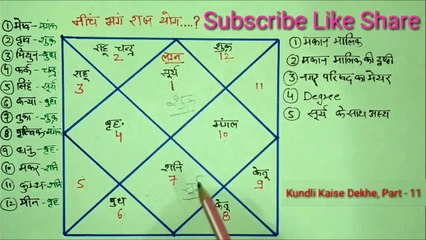 नीच भंग राज योग...?
Subscribe Like Share
① मेष - मंगल
② वृष - शुक्र
③ मिथुन - बुध
④ कर्क - चन्द्र
⑤ सिंह - सूर्य
⑥ कन्या - बुध
⑦ तुला - शुक्र
⑧ वृश्चिक - मंगल
⑨ धनु - गुरु
⑩ मकर - शनि
⑪ कुम्भ - शनि
⑫ मीन - गुरु
राहू चन्द्र
2
लग्न
सूर्य
1
शुक्र
12
राहू
3
11
वृह.
4
मंगल
10
शनि
7
5
बुध
6
केतु
8
केतु
9
① मकान मालिक
② मकान मालिक की दृष्टी
③ नगर परिषद का मेयर
④ Degree
⑤ सूर्य के साथ अस्त
Kundli Kaise Dekhe, Part - 11